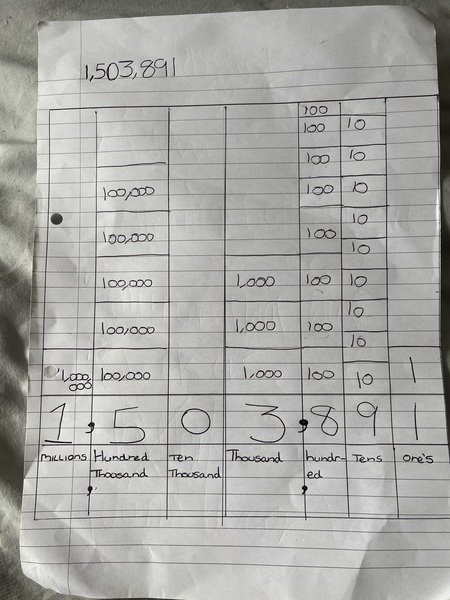 1,503,891
100
100 10
100 10
100,000 100 10
10
100,000 100
10
100,000 1,000 100 10
10
100,000 1,000 100
10
1,000 100,000 1,000 100 10 1
000
1 , 5 0 3 , 8 9 1
Millions Hundred Ten Thousand hundr- Tens one's
Thoosand Thousand ed
, ,